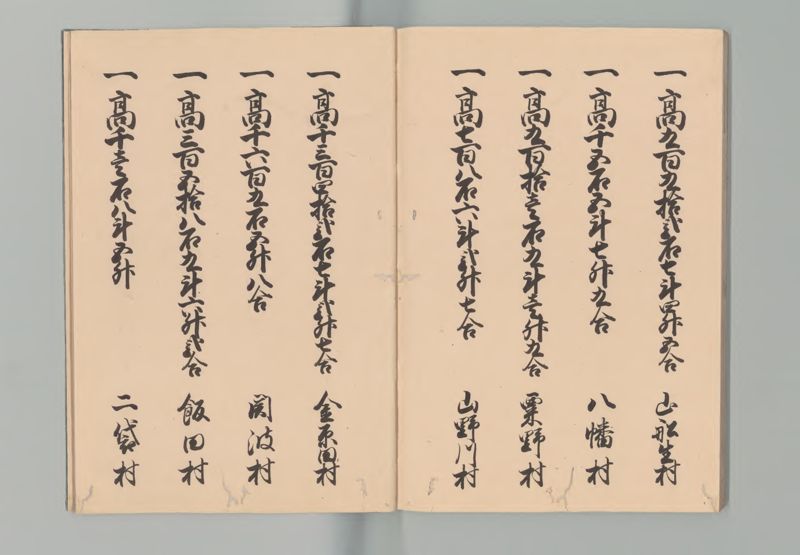 一 高九百五拾弐石七斗四升五合 山舩生村
一 高千五石五斗七升九合 八幡村
一 高九百拾壱石九斗壱升九合 粟野村
一 高七百八石六斗弐升七合 山野川村
一 高千三百四拾弐石七斗弐升七合 金原田村
一 高千六百五石五升八合 関波村
一 高三百五拾八石九斗六升弐合 飯田村
一 高千壱石八斗五升 二袋村